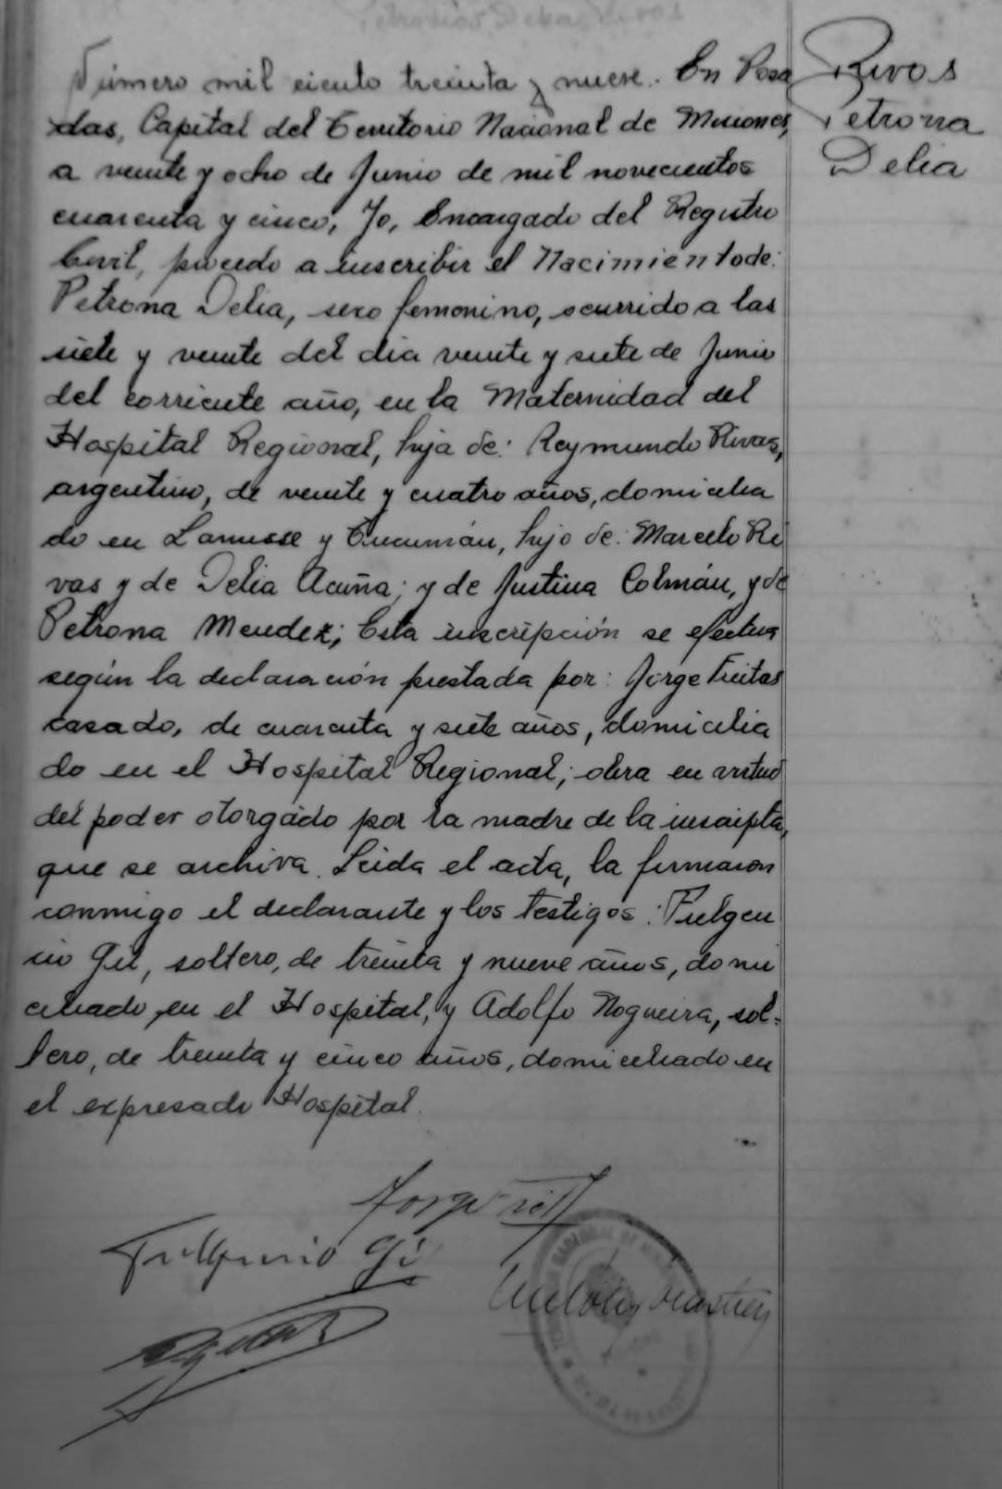 Número mil ciento treinta y nueve. En Posa
das, Capital del Territorio Nacional de Misiones,
a veinte y ocho de Junio de mil novecientos
cuarenta y cinco, Yo, Encargado del Registro
Civil, procedo a inscribir el Nacimiento de:
Petrona Delia, sexo femenino, ocurrido a las
siete y veinte del dia veinte y siete de Junio
del corriente año, en la Maternidad del
Hospital Regional, hija de: Reymundo Rivas,
argentino, de veinte y cuatro años, domicilia
do en Lanusse y Tucumán, hijo de: Marcelo Ri
vas y de Delia Acuña; y de Justina Colmán, y de
Petrona Mendez; Esta inscripción se efectua
según la declaración prestada por: Jorge Freitas
casado, de cuarenta y siete años, domicilia
do en el Hospital Regional; obra en virtud
del poder otorgádo por la madre de la inscripta,
que se archiva. Leida el acta, la firmaron
conmigo el declarante y los testigos: Fulgen
cio Gil, soltero, de treinta y nueve años, domi
ciliado en el Hospital, y Adolfo Nogueira, sol-
tero, de treinta y cinco años, domiciliado en
el expresado Hospital.
Rivas
Petrona
Delia
Jorge
Fulgencio Gil